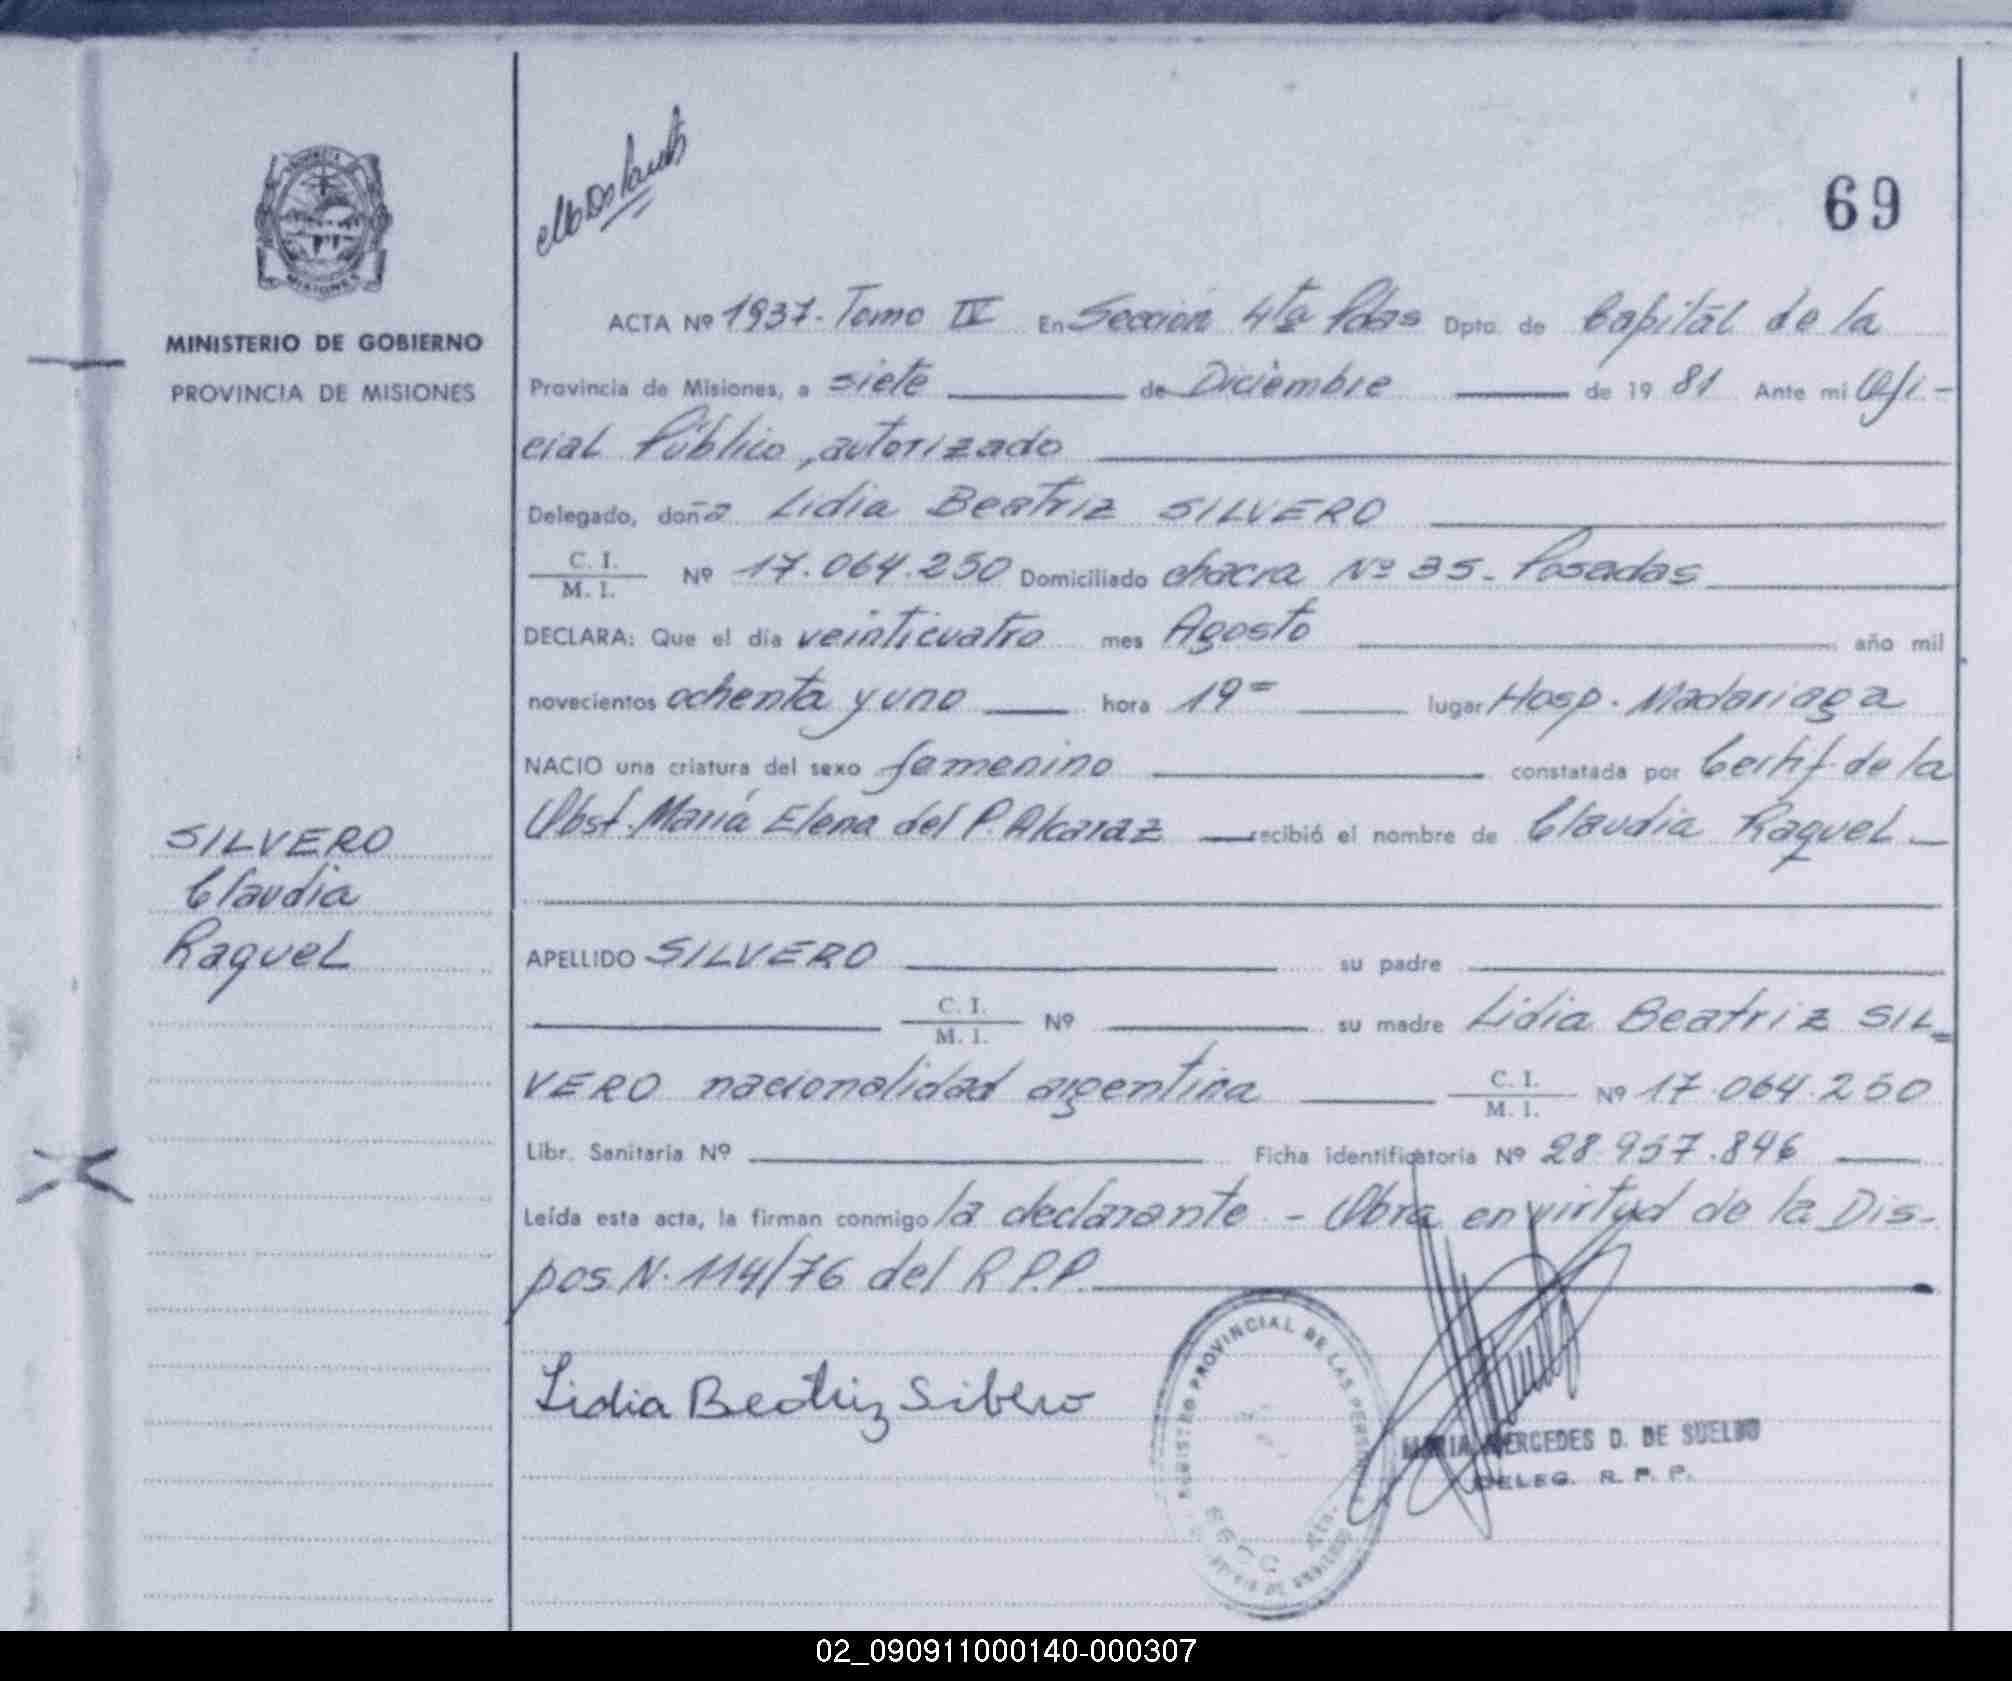 69
ACTA Nº 1937. Tomo IV En Sección 4ta Pdas Dpto. de Capital de la
MINISTERIO DE GOBIERNO
PROVINCIA DE MISIONES
Provincia de Misiones, a siete de Diciembre de 1981 Ante mi Ofi-
cial Público, autorizado
Delegado, doña Lidia Beatriz SILVERO
C. I.
M. I. Nº 17.064.250 Domiciliado chacra Nº 35 - Posadas
DECLARA: Que el día veinticuatro mes Agosto año mil
novecientos ochenta y uno hora 19= lugar Hosp. Madariaga
NACIO una criatura del sexo femenino constatada por Certif. de la
Obst. María Elena del P. Alcaraz recibió el nombre de Claudia Raquel
SILVERO
Claudia
Raquel
APELLIDO SILVERO su padre
C. I.
M. I. Nº su madre Lidia Beatriz SIL=
VERO nacionalidad argentina C. I.
M. I. Nº 17.064.250
Libr. Sanitaria Nº Ficha identificatoria Nº 28.957.846
Leída esta acta, la firman conmigo la declarante - Obra en virtud de la Dis-
pos. N. 114/76 del R.P.P.
Lidia Beatriz Silvero
REGISTRO PROVINCIAL DE LAS PERSONAS
MARIA MERCEDES D. DE SUELDO
DELEG. R. P. P.
02_090911000140-000307